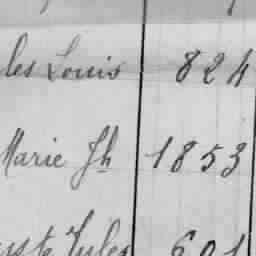 les Louis 824
Marie Jh 1853
Jules 601